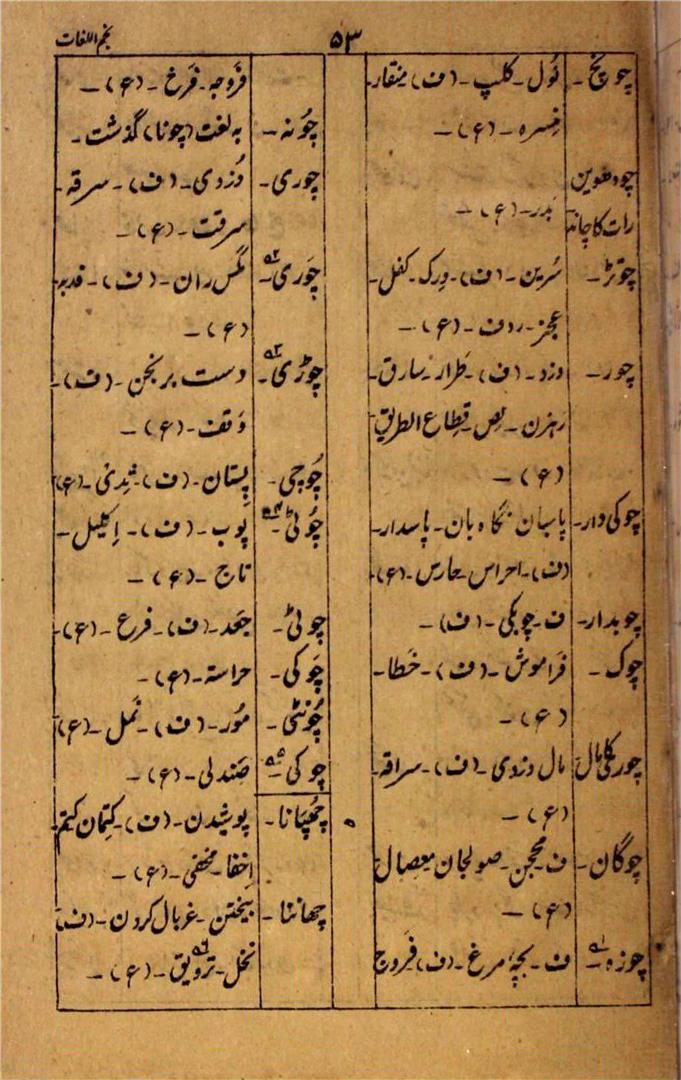 نجم اللغات
۵۳
چونچ۔ نُول۔ کلپ۔ (ف) منقار۔
مِنسره۔ (ع)۔
چودھوین
رات کا چاند بَدر۔ (ع)۔
چوتڑ۔ سُرین۔ (ف)۔ وِرک۔ کفل۔
عجز۔ ردف۔ (ع)۔
چور۔ دزد۔ (ف)۔ طَرار۔ سارق۔
رہزن۔ لِص۔ قِطاع الطریق
(ع)۔
چوکی دار۔ پاسبان نگاہ بان۔ پاسدار۔
(ف)۔ احراس۔ حارس۔ (ع)۔
چوبدار۔ ف۔ چوبکی۔ (ف)۔
چوک۔ فراموش۔ (ف)۔ خَطا۔
(ع)۔
چوری کا مال مال دزدی۔ (ف)۔ سراقہ۔
(ع)۔
چوگان۔ ف۔ محجن۔ صولجان معصال
(ع)۔
چوزہ۵۱۔ ف۔ بچۂ مرغ۔ (ف) فَروج
فرّوجہ۔ فَرخ۔ (ع)۔
چُونہ۔ بہ لغت (چونا) گذشت۔
چوری۔ دُزدی۔ (ف)۔ سرقہ۔
سرقت۔ (ع)۔
چَوری۵۲۔ مگس ران۔ (ف)۔
(ع)۔
چوڑی۵۳۔ دست برنجن۔ (ف)۔
وَقف۔ (ع)۔
چُوچی۔ پِستان۔ (ف)۔ ثِدیٌ۔ (ع)
چُوٹی۵۴۔ پوب۔ (ف)۔ اِکلیل۔
تاج۔ (ع)۔
چوٹی۔ جَعد۔ (ف)۔ فرع۔ (ع)۔
چَوکی۔ حراستہ۔ (ع)۔
چُونٹی۔ مُور۔ (ف)۔ نَمل۔ (ع)
چوکی۵۵۔ صَندلی۔ (ع)۔
چھُپانا۔ پوشیدن۔ (ف)۔ کِتمان کتم۔
اِخفا۔ مخفی۔ (ع)۔
چھاننا۔ بیختن۔ غربال کردن۔ (ف)
نخل۔ ترویق۵۶۔ (ع)۔